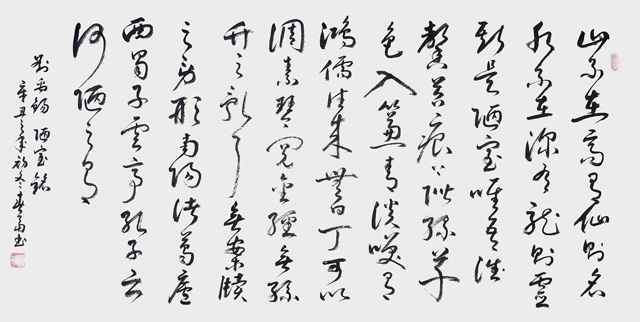 山不在高有仙則名
水不在深有龍則靈
斯是陋室唯吾德
馨苔痕上階綠草
色入簾青談笑有
鴻儒往來無白丁可以
調素琴閱金經無絲
竹之亂耳無案牘
之勞形南陽諸葛廬
西蜀子雲亭孔子云
何陋之有
劉禹錫 陋室銘
辛丑之年初冬書